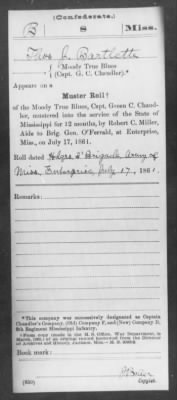 (Confederate.)
B 8 Miss.
Thos J. Bartlett
Moody True Blues
(Capt. G. C. Chandler).
Appears on a
Muster Roll†
of the Moody True Blues, Capt. Green C. Chand-
ler, mustered into the service of the State of
Mississippi for 12 months, by Robert C. Miller,
Aide to Brig. Gen. O'Ferrald, at Enterprise,
Miss., on July 17, 1861.
Roll dated Hdqrs 2' Brigade Army of
Miss. Enterprise July 17, 1861.
Remarks:
*This company was successively designated as Captain
Chandler's Company, (Old) Company F, and (New) Company D,
8th Regiment Mississippi Infantry.
†From copy (made in the M. S. Office, War Department, in
of an original record borrowed from the Director
of Archives and History, Jackson, Miss.
Book mark:
(639)
Copyist.